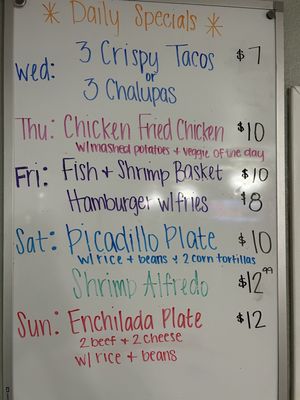 * Daily Specials *
Wed: 3 Crispy Tacos $7
or
3 Chalupas
Thu: Chicken Fried Chicken $10
w/mashed potatoes + veggie of the day
Fri: Fish + Shrimp Basket $10
Hamburger w/fries $8
Sat: Picadillo Plate $10
w/rice + beans + 2 corn tortillas
Shrimp Alfredo $12.99
Sun: Enchilada Plate $12
2 beef + 2 cheese
w/rice + beans